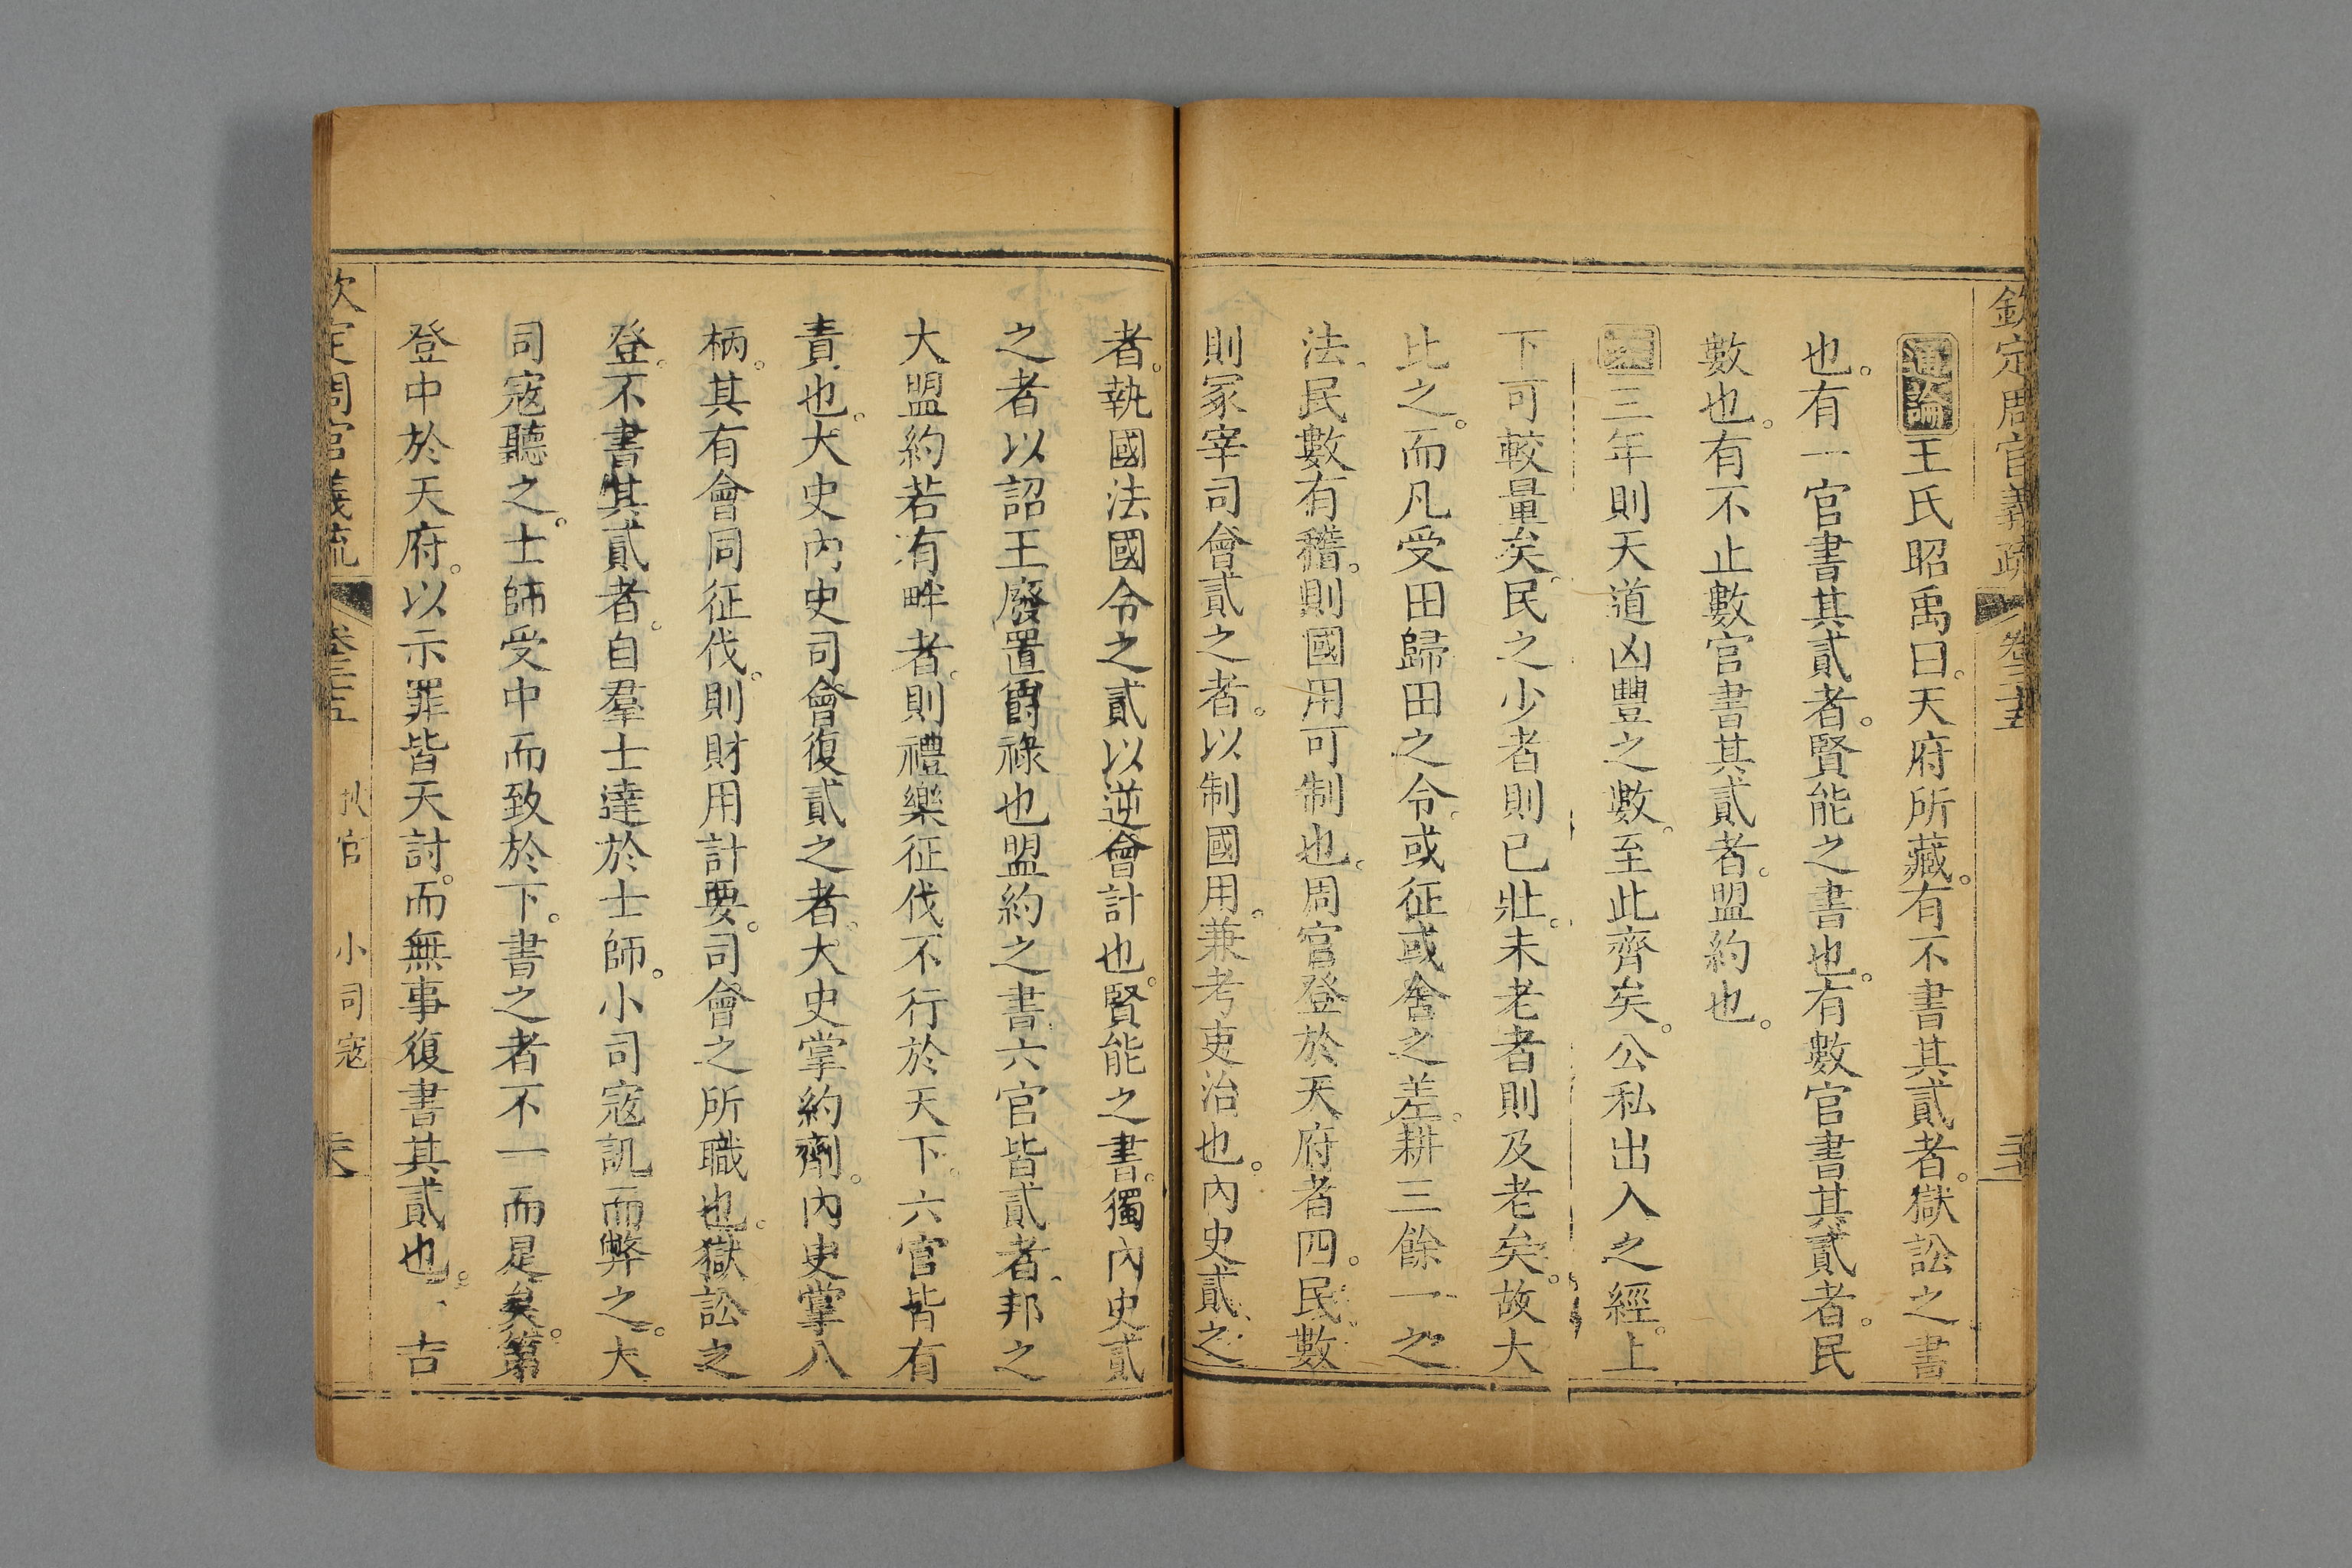 欽定周官義疏 卷三十五
通論王氏昭禹曰。天府所藏。有不書其貳者。獄訟之書
也。有一官書其貳者。賢能之書也。有數官書其貳者。民
數也。有不止數官書其貳者。盟約也。
三年則天道凶豐之數。至此齊矣。公私出入之經。上
下可較量矣。民之少者則已壯。未老者則及老矣。故大
比之。而凡受田歸田之令。或征或舍之差。耕三餘一之
法、民數有稽。則國用可制也。周官登於天府者四。民數
則冢宰司會貳之者。以制國用。兼考吏治也。內史貳之
者。執國法國令之貳以逆會計也。賢能之書。獨內史貳
之者以詔王廢置爵祿也盟約之書六官皆貳者、邦之
大盟約若有畔者。則禮樂征伐不行於天下。六官皆有
責也。大史內史司會復貳之者。大史掌約劑。內史掌八
柄。其有會同征伐。則財用計要。司會之所職也。獄訟之
登。不書其貳者。自羣士達於士師。小司寇訊而弊之。大
司寇聽之。士師受中而致於下。書之者不一而足矣。第
登中於天府。以示罪皆天討。而無事復書其貳也。 古
欽定周官義疏 卷三十五 秋官 小司寇